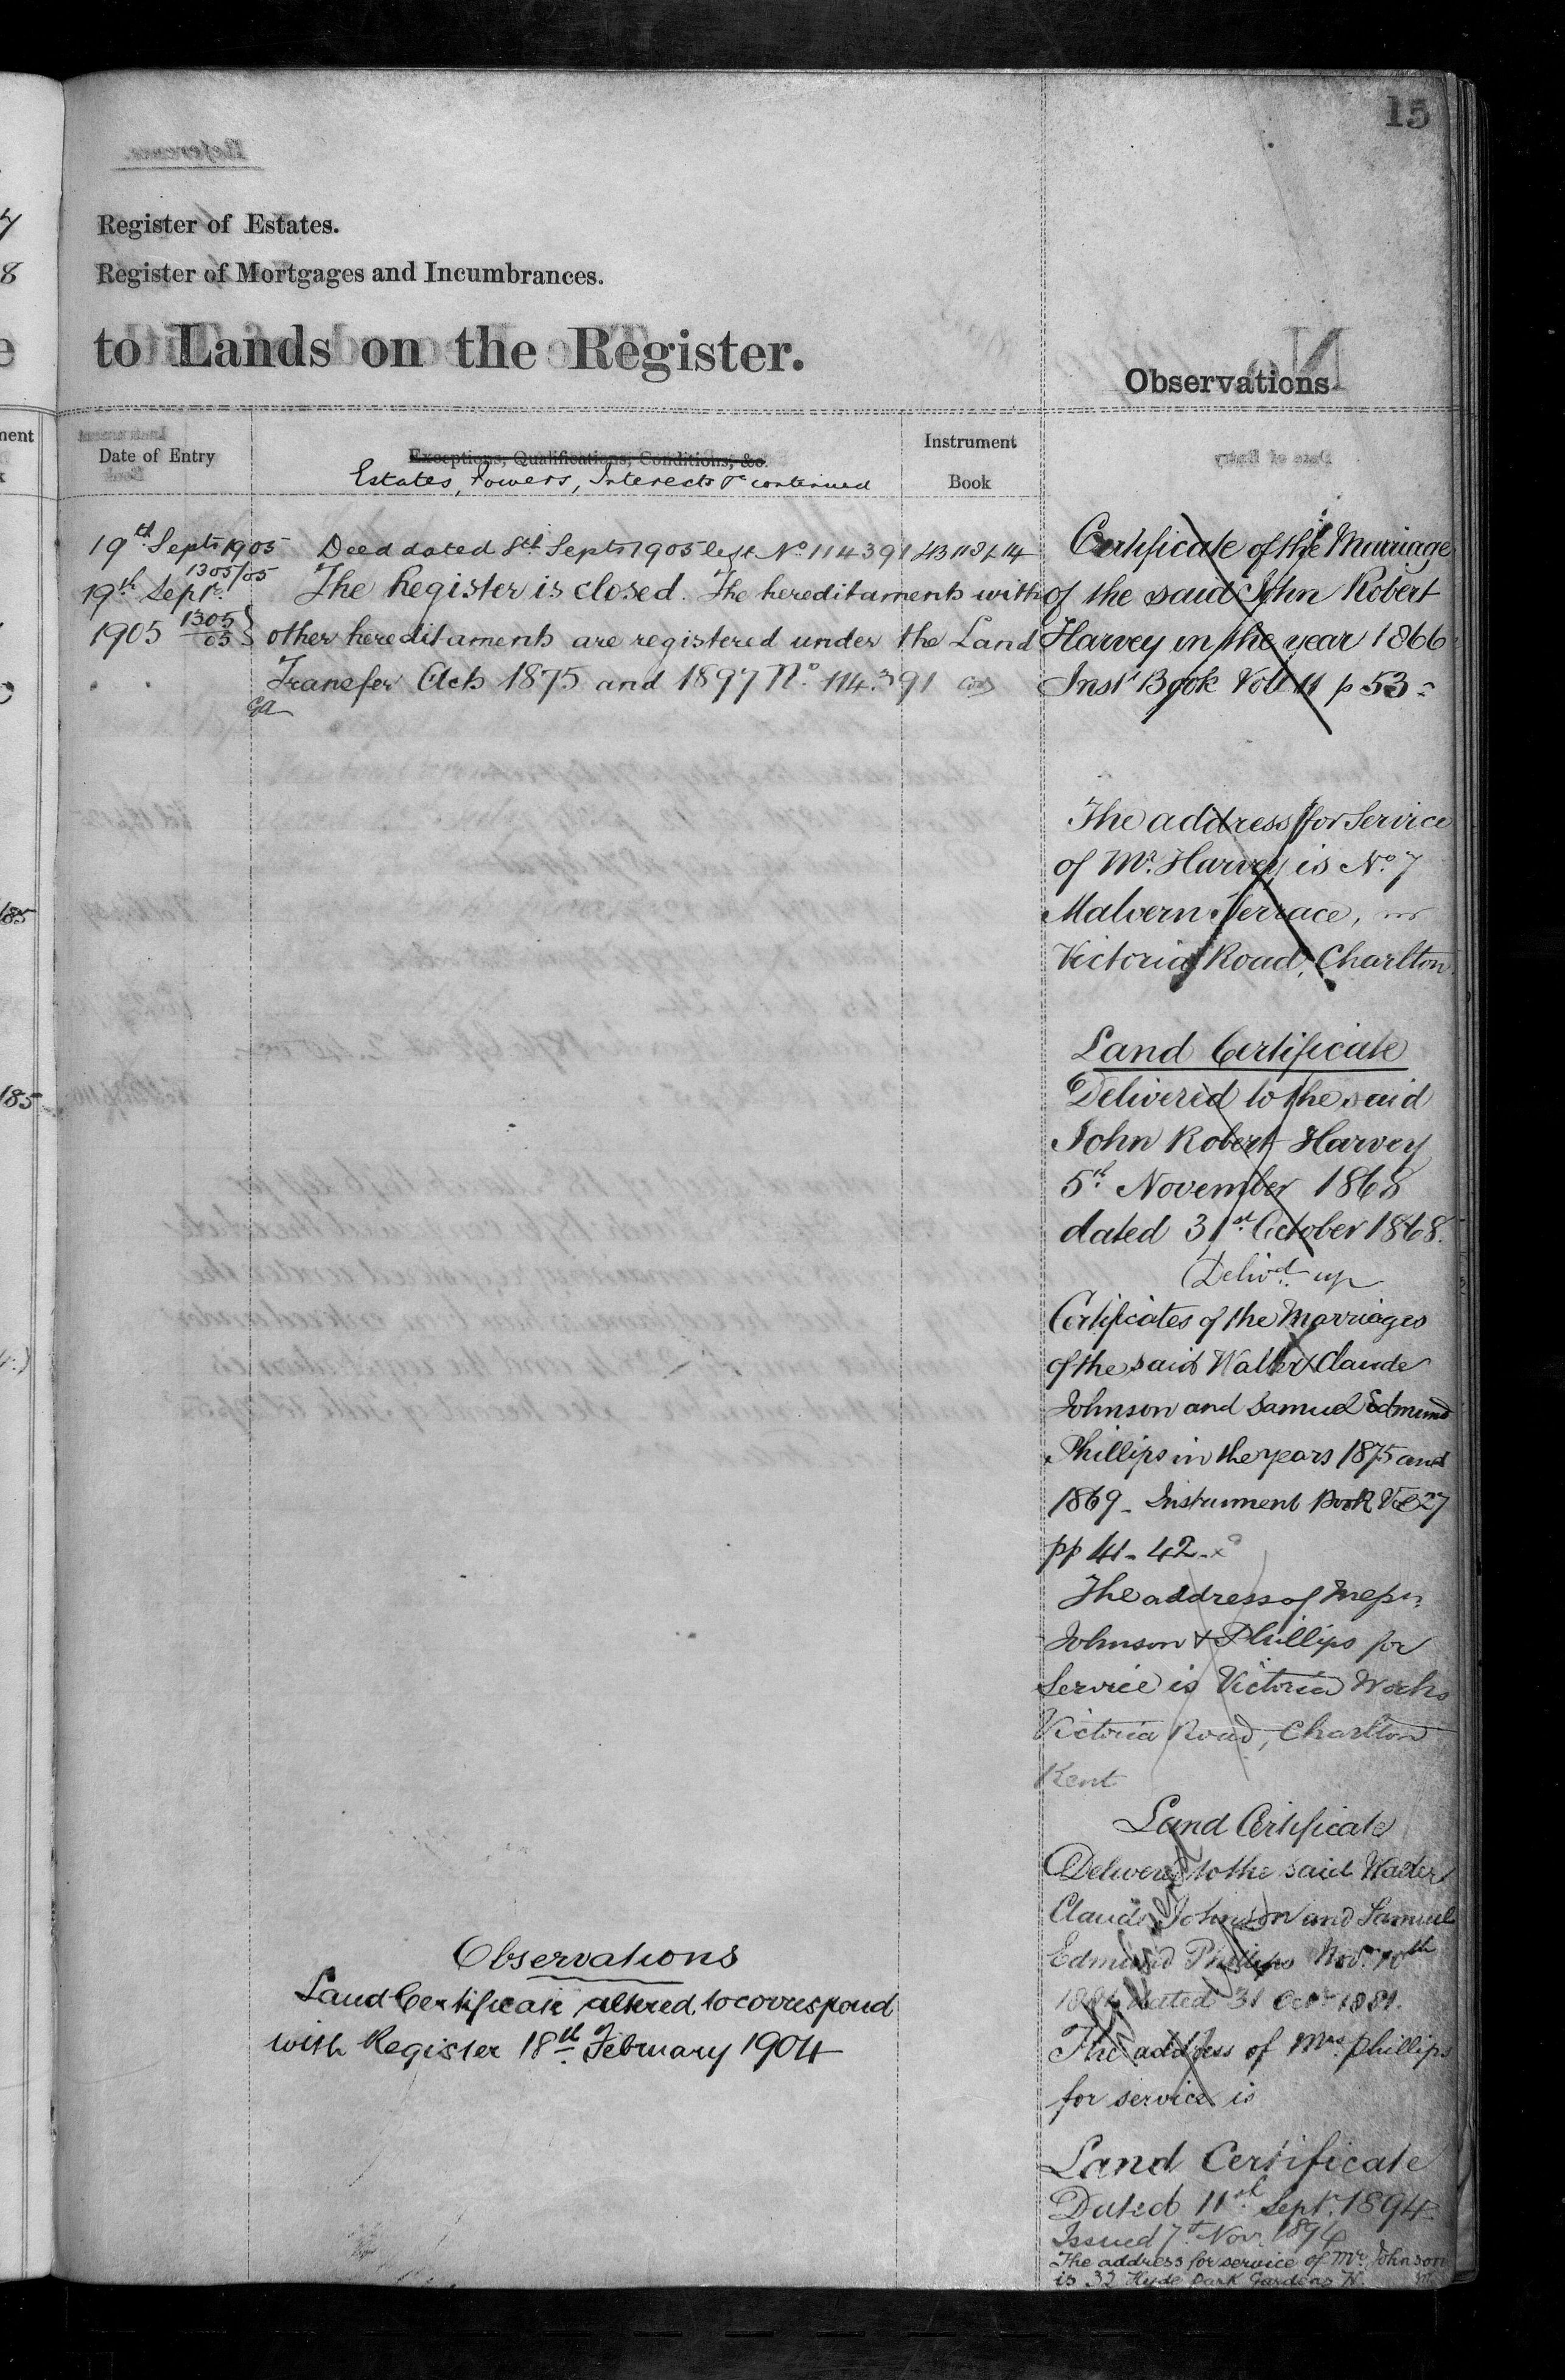 15
Register of Estates.
Register of Mortgages and Incumbrances.
to Lands on the Register.
Observations
Date of Entry
Exceptions, Qualifications, Conditions, &c.
Estates, Powers, Interests &c continued
Instrument
Book
19th Septr 1905 Deed dated 8th Septr 1905 left No 114391
1305/05
19th Septr. The Register is closed. The hereditaments with
1905 1305/05 other hereditaments are registered under the Land
Transfer Acts 1875 and 1897 No. 114391
Certificate of the Marriage
of the said John Robert
Harvey in the year 1866
Inst Book Vol 11 p 53
The address for Service
of Mr. Harvey is No. 7
Malvern Terrace,
Victoria Road, Charlton
Land Certificate
Delivered to the said
John Robert Harvey
5th November 1868
dated 31st October 1868.
Delivd. up
Certificates of the Marriages
of the said Walter Claude
Johnson and Samuel Edmund
Phillips in the years 1875 and
1869 - Instrument Book Vol 27
pp 41-42
The address of Messrs
Johnson & Phillips for
Service is Victoria Works
Victoria Road, Charlton
Kent
Land Certificate
Delivered to the said Walter
Claude Johnson and Samuel
Edmund Phillips Novr 10th
1881 dated 31 Octr 1881.
The address of Mrs. Phillips
for service is
Land Certificate
Dated 11th Septr. 1894
Issued 7th Novr 1894
The address for service of Mr. Johnson
is 32 Hyde Park Gardens W.
Observations
Land Certificate altered to correspond
with Register 18th February 1904